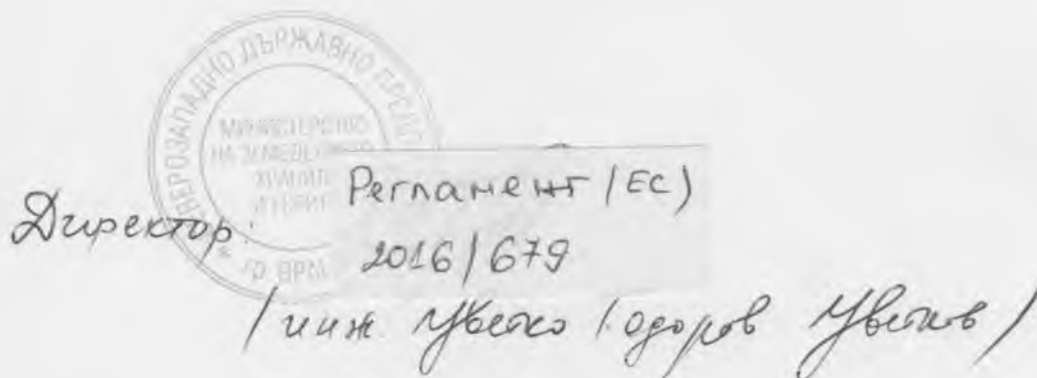 СЕВЕРОЗАПАДНО ДЪРЖАВНО ПРЕДП
МИНИСТЕРСТВО
НА ЗЕМЕДЕЛИЕТО
ХРАНИТЕ
И ГОРИТЕ
гр. ВРАЦ
Регламент (ЕС)
Директор:
2016/679
/инж Цветко Тодоров Цветков/